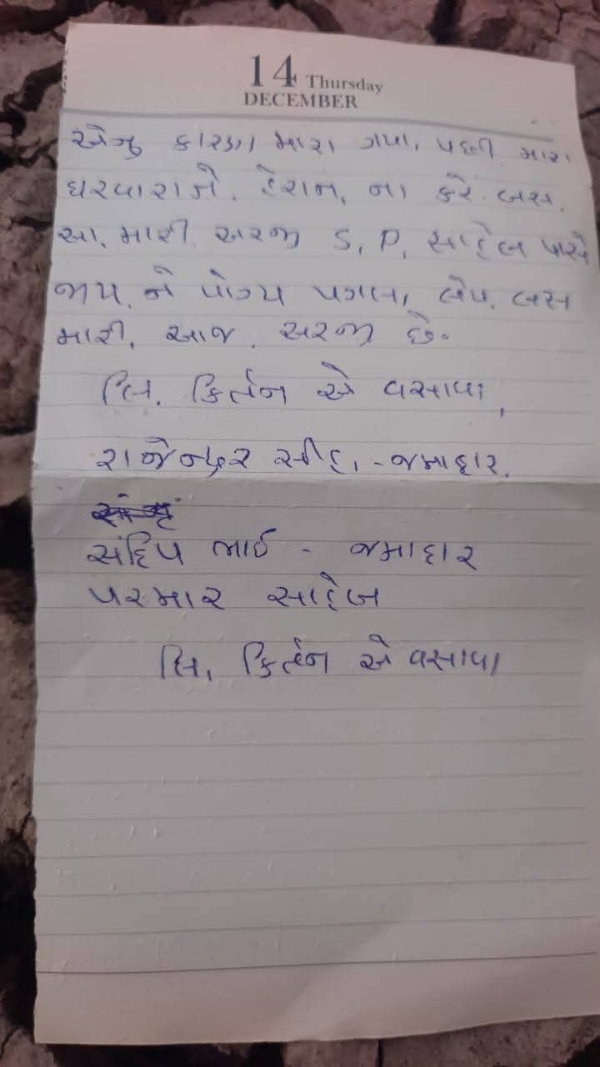 14 Thursday
DECEMBER
એનુ કારણ મારા ગયા, પછી મારા
ઘરવારાને, હેરાન, ના કરે બસ.
આ, મારી અરજી S, P, સાહેબ પાસે
જાય, ને યોગ્ય પગલા, લેય, બસ
મારી, આજ, અરજી છે.
લિ. કિર્તન એ વસાવા,
રાજેન્દ્ર સીંહ, - જમાદાર.
સંદિપ ભાઈ - જમાદાર
પરમાર સાહેબ
લિ, કિર્તન એ વસાવા